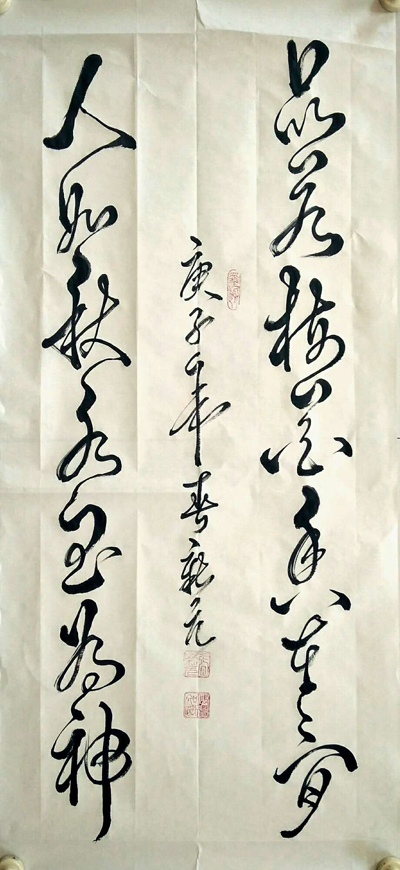 品若梅花香在骨
庚子年春
人如秋水玉為神